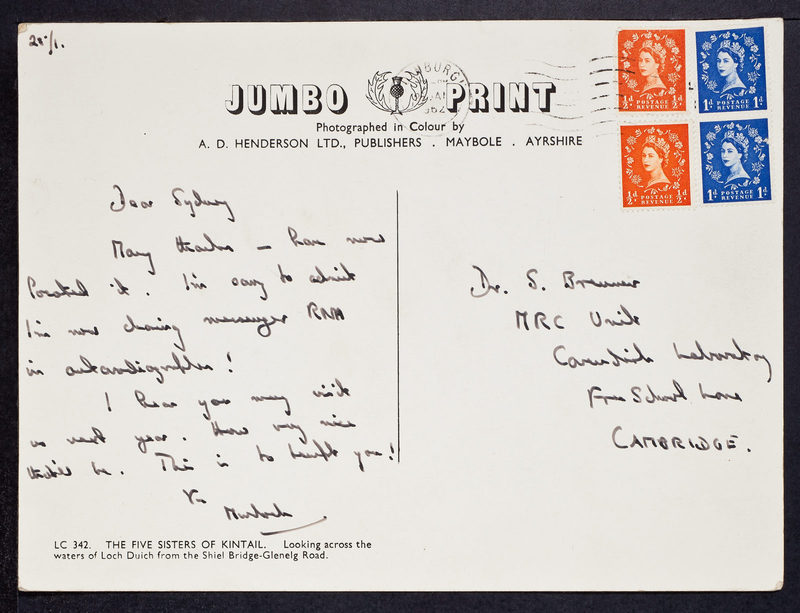 25/1.
BURGH
JAN
1962
JUMBO PRINT
Photographed in Colour by
A. D. HENDERSON LTD., PUBLISHERS . MAYBOLE . AYRSHIRE
½d POSTAGE REVENUE ½d
1d POSTAGE REVENUE 1d
½d POSTAGE REVENUE ½d
1d POSTAGE REVENUE 1d
Dear Sydney
Many thanks – have now
located it. I'm sorry to admit
I'm now chasing messenger RNA
in autoradiographs!
I hear you may visit
us next year. How very nice
that'll be. This is to tempt you!
Yrs
Murdoch
Dr. S. Brenner
MRC Unit
Cavendish Laboratory
Free School Lane
CAMBRIDGE.
LC 342. THE FIVE SISTERS OF KINTAIL. Looking across the
waters of Loch Duich from the Shiel Bridge-Glenelg Road.